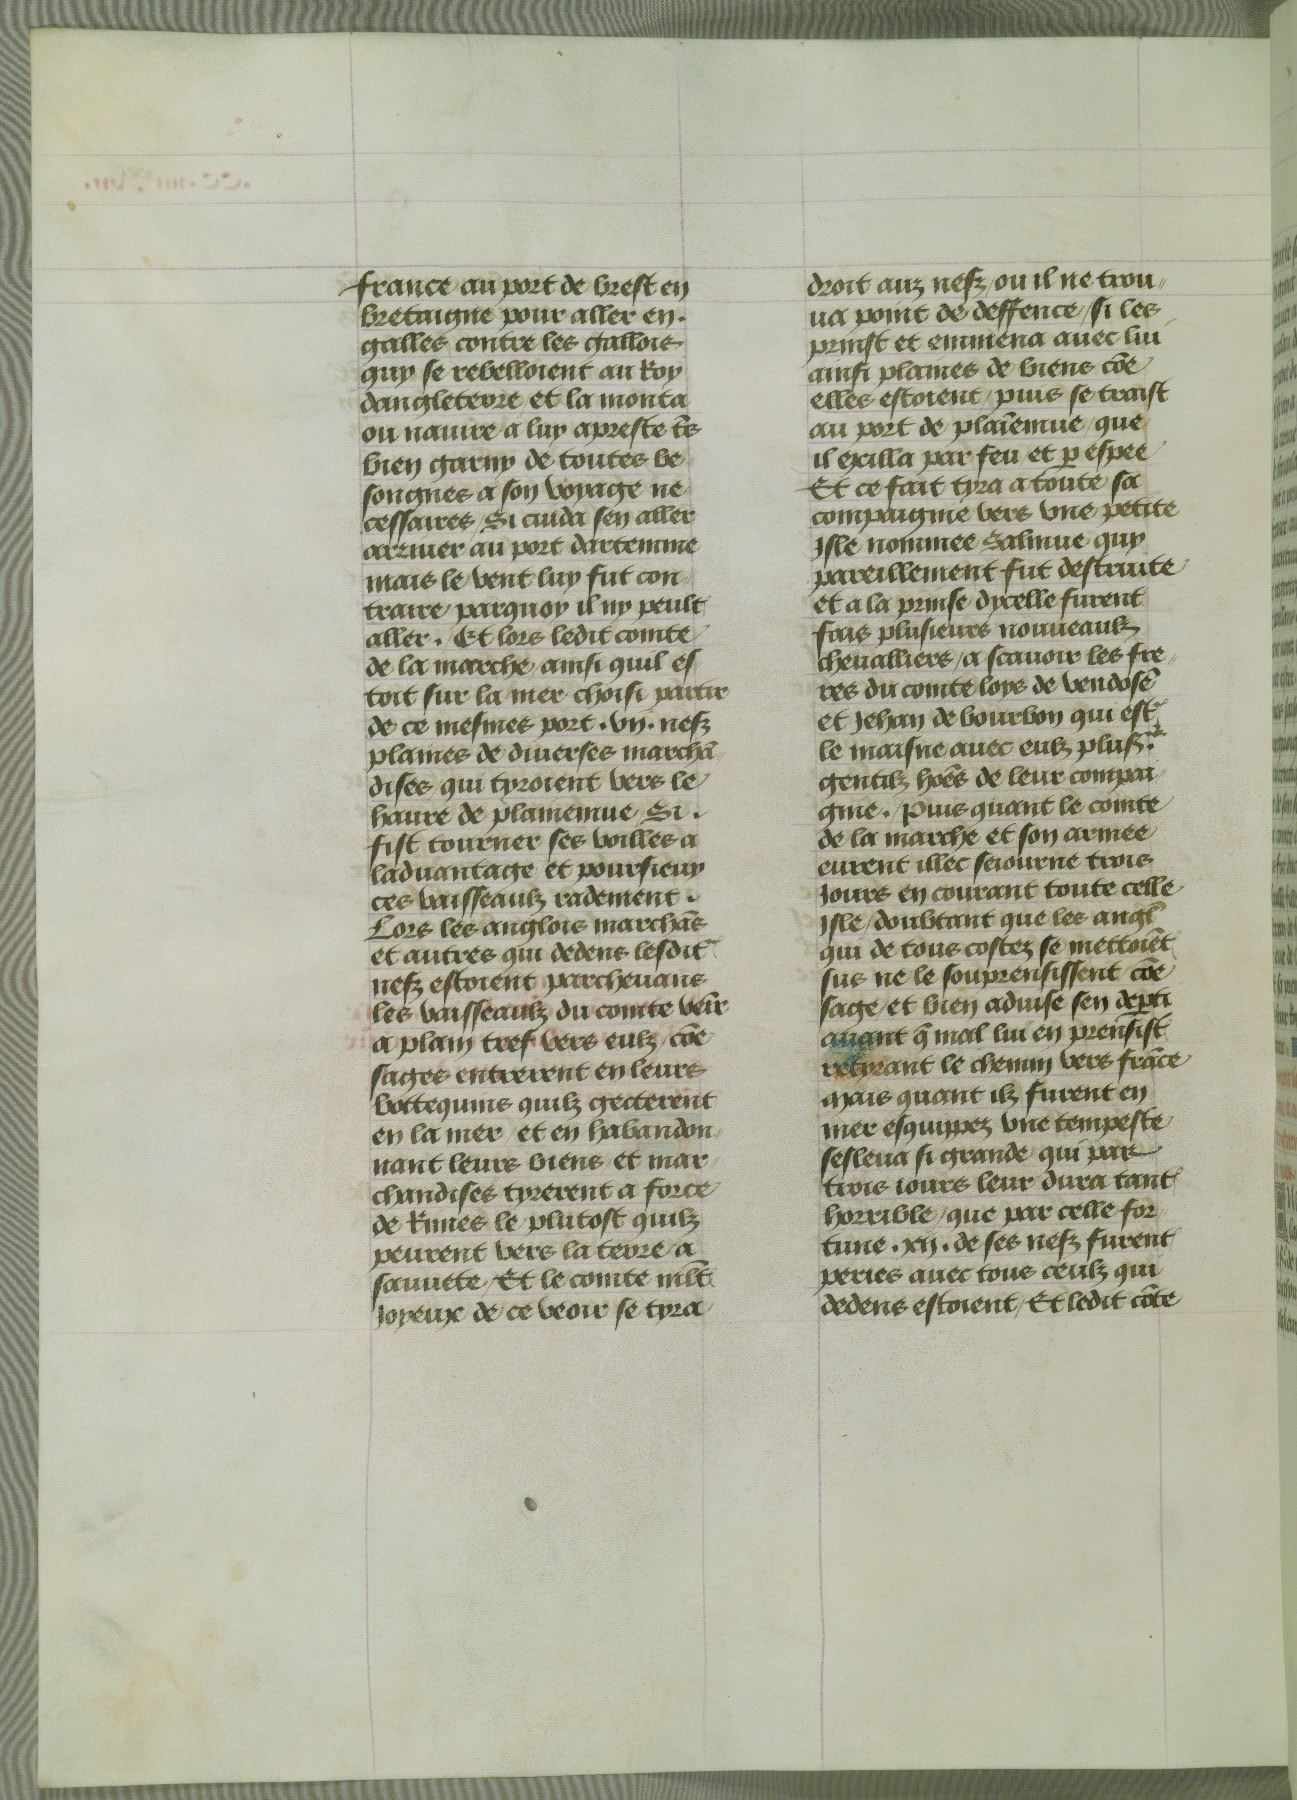 france au port de brest en
bretaigne pour aller en.
galles contre les gallois
quy se rebelloient au Roy
dangleterre / et la monta
ou nauire a luy apreste t̄s
bien garny de toutes be
songnes a son voyage ne
cessaires / Si cuida sen aller
arriuer au port dartemine
mais le vent luy fut con
traire parquoy il ny peult
aller. Et lors ledit comte
de la marche ainsi quil es
toit sur la mer choisi partir
de ce mesmes port .vij. nefz
plaines de diuerses marchā
dises qui tyroient vers le
haure de plainemue / Si.
fist tourner ses voilles a
laduantage et poursieuy
ces vaisseaulz radement.
Lors les anglois marchās
et autres qui dedens lesdit̄
nefz estoient parcheuans
les vaisseaulz du comte ven̄r
a plain tref vers eulz / cōe
sages entrerent en leurs
bottequins quilz gecterent
en la mer / et en habandon
nant leurs biens et mar
chandises tyrerent a force
de Rimes le plutost quilz
peurent vers la terre a
sauuete / Et le comte mlt̄
Joyeux de ce veoir se tyra
droit auz nefz / ou il ne trou
ua point de deffence / si les
prinst et emmena auec lui
ainsi plaines de biens cōe
elles estoient / puis se traist
au port de plaīemue / que
il exilla par feu et p espee
Et ce fait tyra a toute sa
compaignie vers vne petite
Isle nommee Salmue quy
pareillement fut destruite
et a la prinse dycelle furent
fais plusieurs nouueaulz
cheualliers / a scauoir les fre
res du comte loys de vendosē
et Jehan de bourbon qui est̄
le maisne auec eulz pluss.rs
gentilz hoēs de leur compai
gnie. Puis quant le comte
de la marche et son armee
eurent illec seiourne trois
Jours en courant toute celle
Isle / doubtant que les angl̄
qui de tous costez se mettoiēt
sus ne le souprensissent cōe
sage et bien aduise sen dep̄ti
auant q̄ mal lui en prensist
retyrant le chemin vers frāce
Mais quant ilz furent en
mer esquippez vne tempeste
sesleua si grande qui par
trois iours leur dura tant
horrible / que par celle for
tune .xij. de ses nefz furent
peries auec tous ceulz qui
dedens estoient / Et ledit cōte